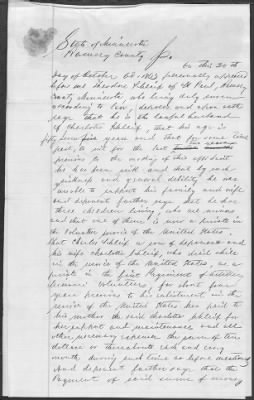 State of Minnesota
Ramsey County } ss.
On this 20th
day of October A.D. 1863 personally appeared
before me Theodore Schleif of St Paul, Ramsey
County, Minnesota who being duly sworn
according to law, deposes and upon oath
says that he is the lawful husband
of Charlotte Schleif, that his age is
fifty years and that for some time
past, to wit for the last
previous to the making of this affidavit
he has been sick and that by such
sickness and general debility he was
unable to support his family and wife
and deponent further says that he has
three children living, who are minors
and that one of them is now a private in
the Volunteer service of the United States.
That Charles Schleif a son of deponent and
his wife Charlotte Schleif, who died while
in the service of the United States as a
private in the first Regiment of
Volunteers, for about four
years previous to his enlistment in the
service of the United States has paid to
his mother the said Charlotte Schleif for
her support and maintenance and all
other necessary expenses the sum of ten
dollars or thereabouts each and every
month, during such time as before mentioned
And deponent further says that the
Payment of said sums of money